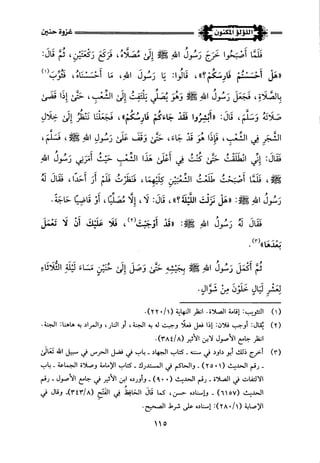 اللؤلؤ المكنون
غزوة حنين
فَلَمَّا أَصْبَحُوا خَرَجَ رَسُولُ اللهِ ﷺ إِلَى مُصَلَّاهُ، فَرَكَعَ رَكْعَتَيْنِ، ثُمَّ قَالَ:
«هَلْ أَحْسَسْتُمْ فَارِسَكُمْ؟»، قَالُوا: يَا رَسُولَ اللهِ، مَا أَحْسَسْنَاهُ، فَثُوِّبَ(١)
بِالصَّلَاةِ، فَجَعَلَ رَسُولُ اللهِ ﷺ وَهُوَ يُصَلِّي يَلْتَفِتُ إِلَى الشِّعْبِ، حَتَّى إِذَا قَضَى
صَلَاتَهُ وَسَلَّمَ، قَالَ: «أَبْشِرُوا فَقَدْ جَاءَكُمْ فَارِسُكُمْ»، فَجَعَلْنَا نَنْظُرُ إِلَى خِلَالِ
الشَّجَرِ فِي الشِّعْبِ، فَإِذَا هُوَ قَدْ جَاءَ، حَتَّى وَقَفَ عَلَى رَسُولِ اللهِ ﷺ، فَسَلَّمَ،
فَقَالَ: إِنِّي انْطَلَقْتُ حَتَّى كُنْتُ فِي أَعْلَى هَذَا الشِّعْبِ حَيْثُ أَمَرَنِي رَسُولُ اللهِ
ﷺ، فَلَمَّا أَصْبَحْتُ طَلَعْتُ الشِّعْبَيْنِ كِلَيْهِمَا، فَنَظَرْتُ، فَلَمْ أَرَ أَحَدًا، فَقَالَ لَهُ
رَسُولُ اللهِ ﷺ: «هَلْ نَزَلْتَ اللَّيْلَةَ؟»، قَالَ: لَا، إِلَّا مُصَلِّيًا، أَوْ قَاضِيًا حَاجَةً.
فَقَالَ لَهُ رَسُولُ اللهِ ﷺ: «قَدْ أَوْجَبْتَ(٢)، فَلَا عَلَيْكَ أَنْ لَا تَعْمَلَ
بَعْدَهَا»(٣).
ثُمَّ أَكْمَلَ رَسُولُ اللهِ ﷺ بِجَيْشِهِ حَتَّى وَصَلَ إِلَى حُنَيْنٍ مَسَاءَ لَيْلَةِ الثُّلَاثَاءِ
لِعَشْرِ لَيَالٍ خَلَوْنَ مِنْ شَوَّالٍ.
(١) التثويب: إقامة الصلاة. انظر النهاية (٢٢٠/١).
(٢) يُقال: أوجب فلان: إذا فعل فعلًا وجبت له به الجنة، أو النار، والمراد هاهنا: الجنة.
انظر جامع الأصول لابن الأثير (٣٨٤/٨).
(٣) أخرج ذلك أبو داود في سننه - كتاب الجهاد - باب في فضل الحرس في سبيل الله تعالى
- رقم الحديث (٢٥٠١) - والحاكم في المستدرك - كتاب الإمامة وصلاة الجماعة - باب
الالتفات في الصلاة - رقم الحديث (٩٠٠) - وأورده ابن الأثير في جامع الأصول - رقم
الحديث (٦١٥٧) - وإسناده حسن، كما قال الحافظ في الفتح (٣٤٣/٨)، وقال في
الإصابة (٢٨٠/١): إسناده على شرط الصحيح.
١١٥